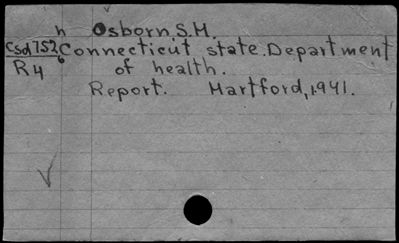 h Osborn S.H.
Csd752 Connecticut state. Department
R4 6 of health.
Report. Hartford, 1941.